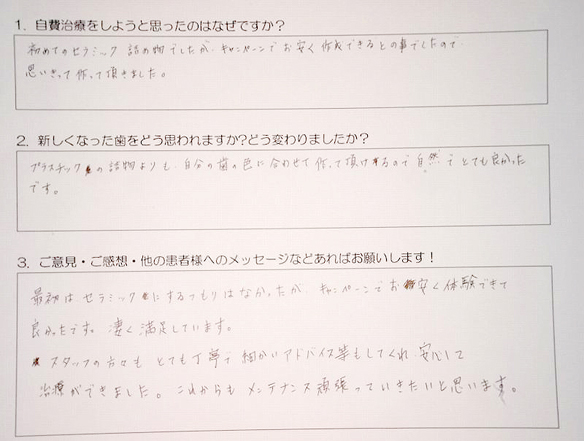 1. 自費治療をしようと思ったのはなぜですか？
初めてのセラミック 詰め物でしたが、キャンペーンで お安く 作成できるとの事でしたので
思いきって作って頂きました。
2. 新しくなった歯をどう思われますか?どう変わりましたか？
プラスチックの詰物よりも、自分の歯の色に合わせて作って頂けるので自然でとても良かった
です。
3. ご意見・ご感想・他の患者様へのメッセージなどあればお願いします！
最初は、セラミックにするつもりはなかったが、キャンペーンでお安く体験できて
良かったです。凄く満足しています。
スタッフの方々も とても丁寧で 細かいアドバイス等もしてくれ、安心して
治療ができました。これからも メンテナンス頑張っていきたいと思います。